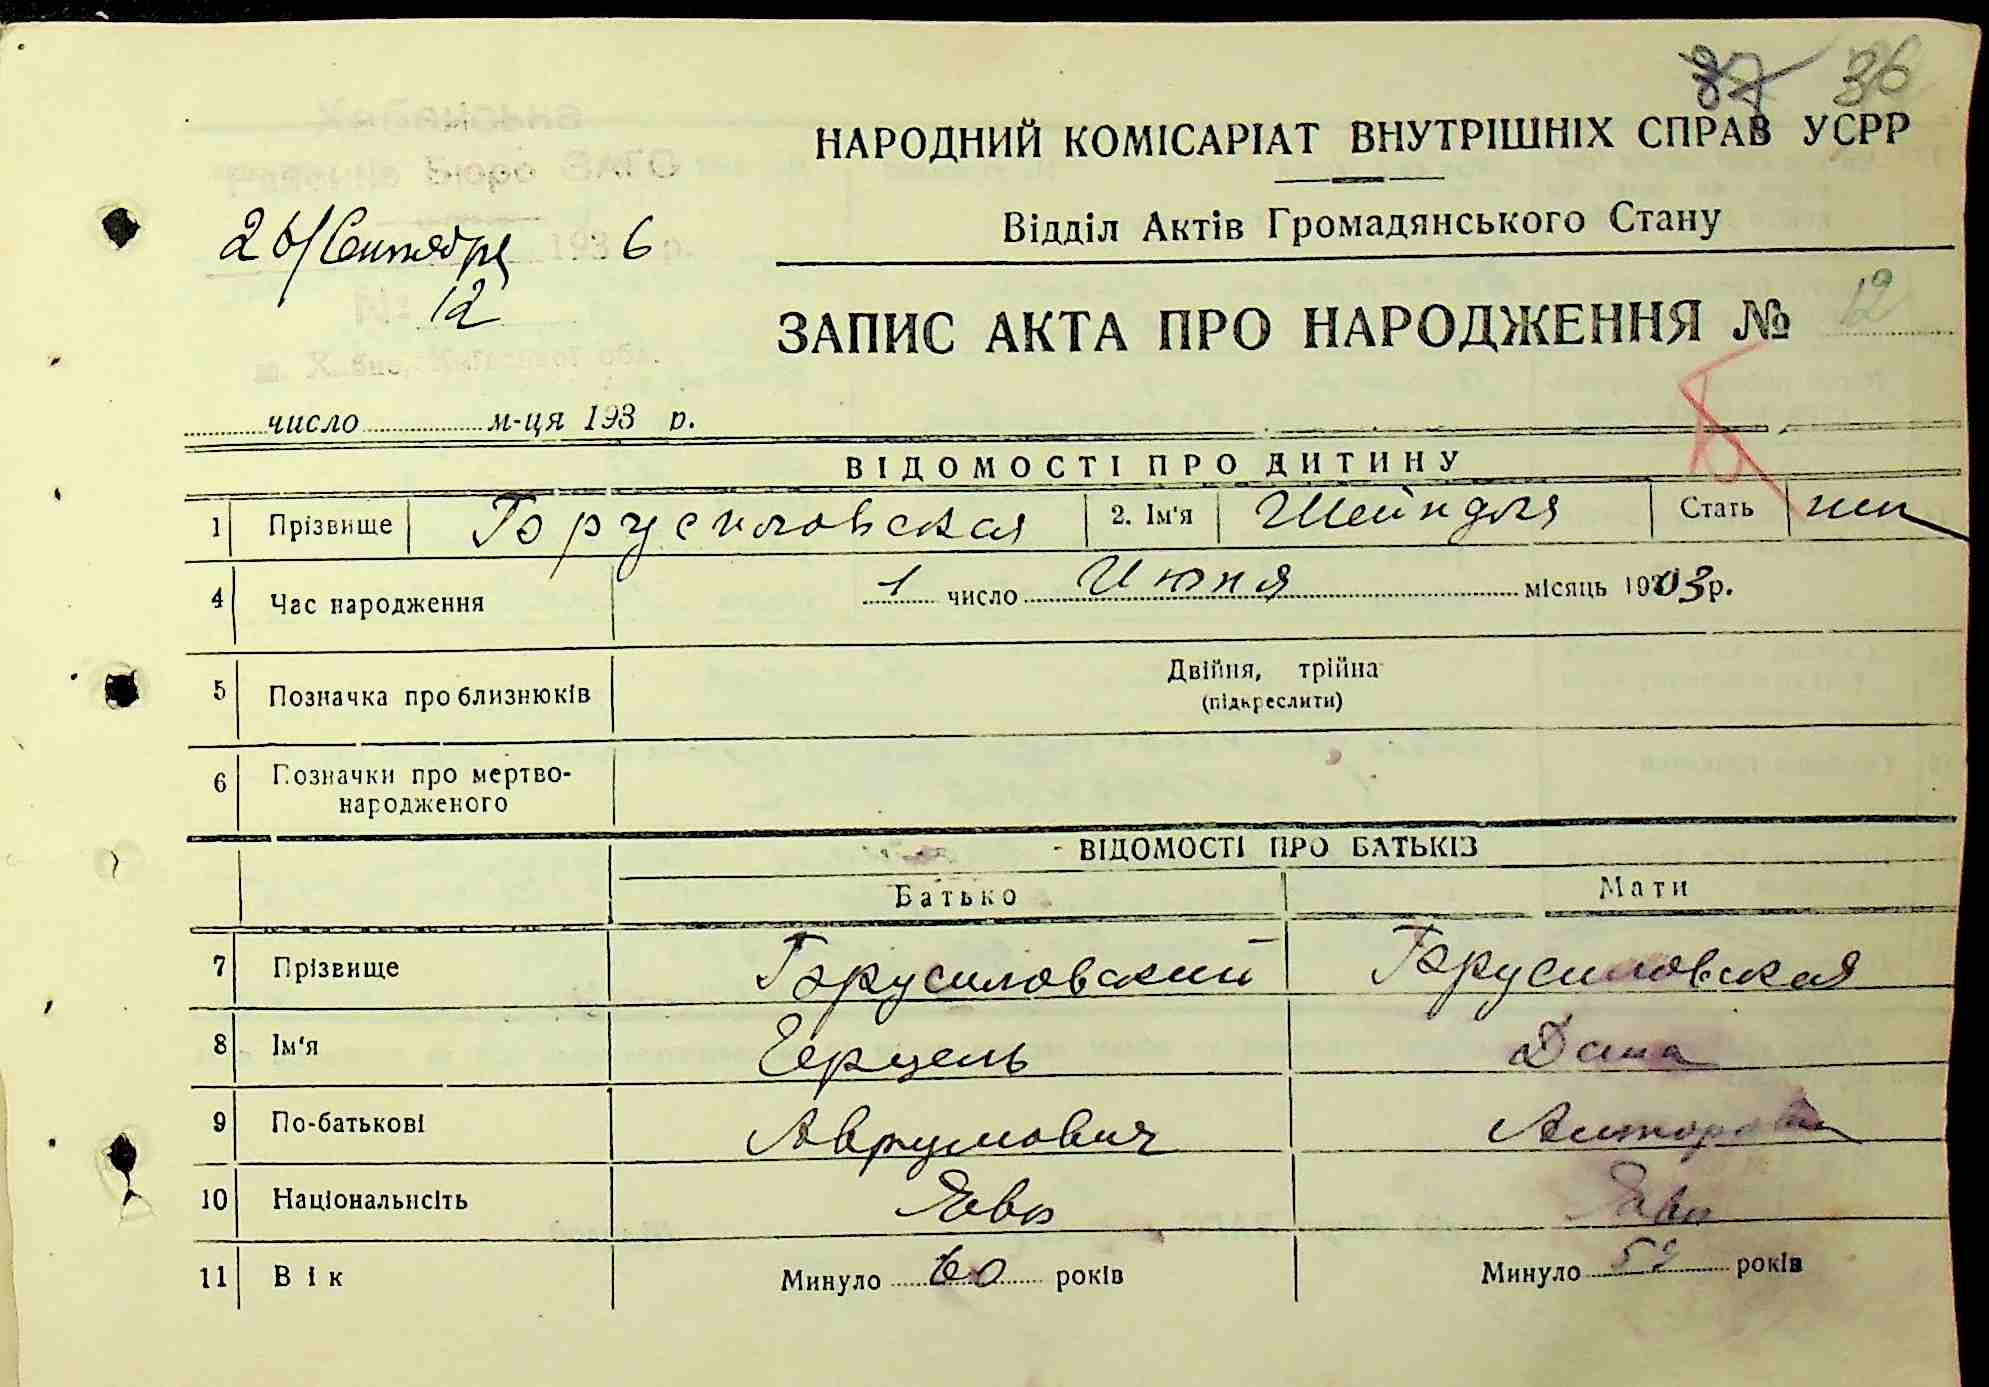 87 36
НАРОДНИЙ КОМІСАРІАТ ВНУТРІШНІХ СПРАВ УСРР
Відділ Актів Громадянського Стану
Районне Бюро ЗАГС
26/Сентября 1936 р.
№ 12
м. Хабне, Київської обл.
ЗАПИС АКТА ПРО НАРОДЖЕННЯ № 12
число м-ця 193 р.
ВІДОМОСТІ ПРО ДИТИНУ
1 Прізвище Брусиловская 2. Ім'я Шейндля Стать жен
4 Час народження 1 число Июня місяць 1903 р.
5 Позначка про близнюків Двійня, трійна
(підкреслити)
6 Позначки про мертво-
народженого
ВІДОМОСТІ ПРО БАТЬКІВ
Батько Мати
7 Прізвище Брусиловский Брусиловская
8 Ім'я Герцель
9 По-батькові Аврумович
10 Національнсіть Евр Евр
11 Вік Минуло 60 років Минуло років